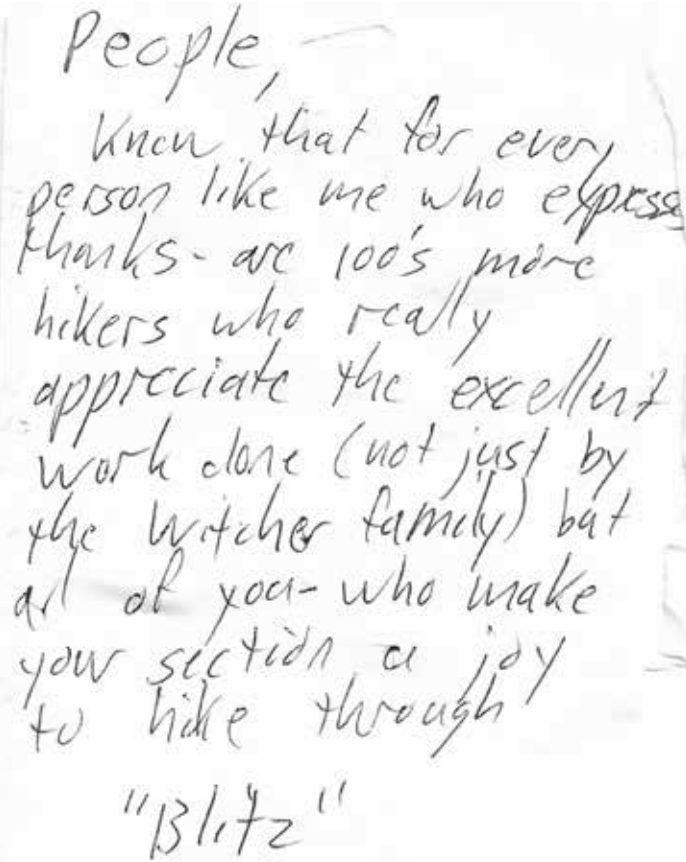 People,
Know that for every
person like me who express
thanks - are 100's more
hikers who really
appreciate the excellent
work done (not just by
the Witcher family) but
all of you - who make
your section a joy
to hike through
"Blitz"